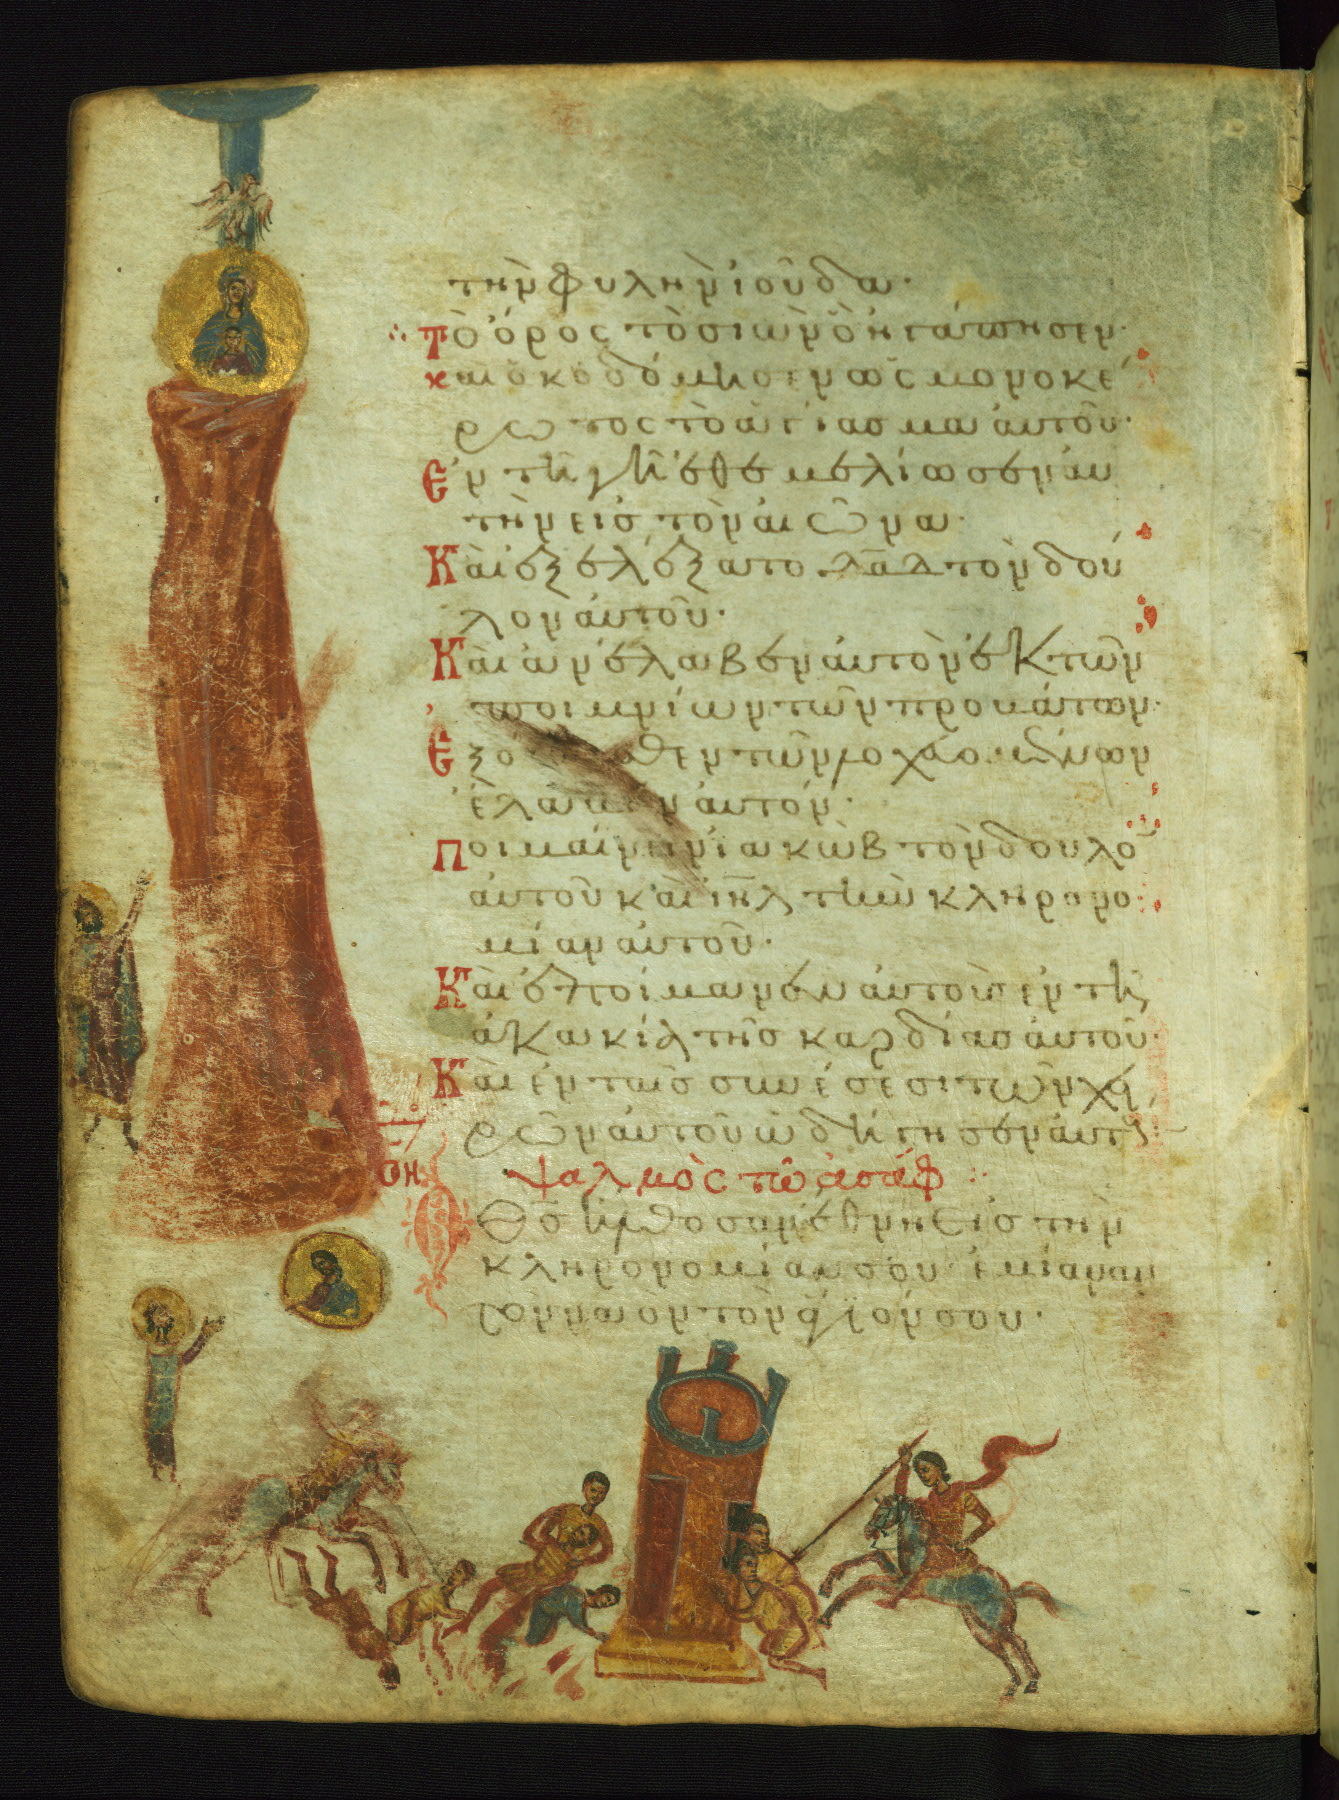 τὴν φυλὴν ἰούδα·
Τὸ ὄρος τὸ σιὼν ὃ ἠγάπησεν·
καὶ ὠκοδόμησεν ὡς μονοκέ
ρωτος τὸ ἁγίασμα αὐτοῦ·
Ἐν τῆ γῆ ἐθεμελίωσεν αὐ
τὴν εἰς τὸν αἰῶνα·
Καὶ ἐξελέξατο δᾱδ τὸν δοῦ
λον αὐτοῦ·
Καὶ ἀνέλαβεν αὐτὸν ἐκ τῶν
ποιμνίων τῶν προβάτων·
αὐτόν·
Ποιμαίνειν ἰακὼβ τὸν δοῦλο̅
αὐτοῦ καὶ ἰη̅λ τὴν κληρονο
μίαν αὐτοῦ·
Καὶ ἐποίμανεν αὐτοὺς ἐν τῆ
ἀκακία τῆς καρδίας αὐτοῦ·
Καὶ ἐν ταῖς συνέσεσι τῶν χει
ρῶν αὐτοῦ ὡδήγησεν αὐτούς·
οη ψαλμὸς τῶ ἀσάφ:
Ὁ θς ἤλθοσαν ἔθνη εἰς τὴν
κληρονομίαν σου· ἐμίαναν
τὸν ναὸν τὸν ἅγιόν σου·